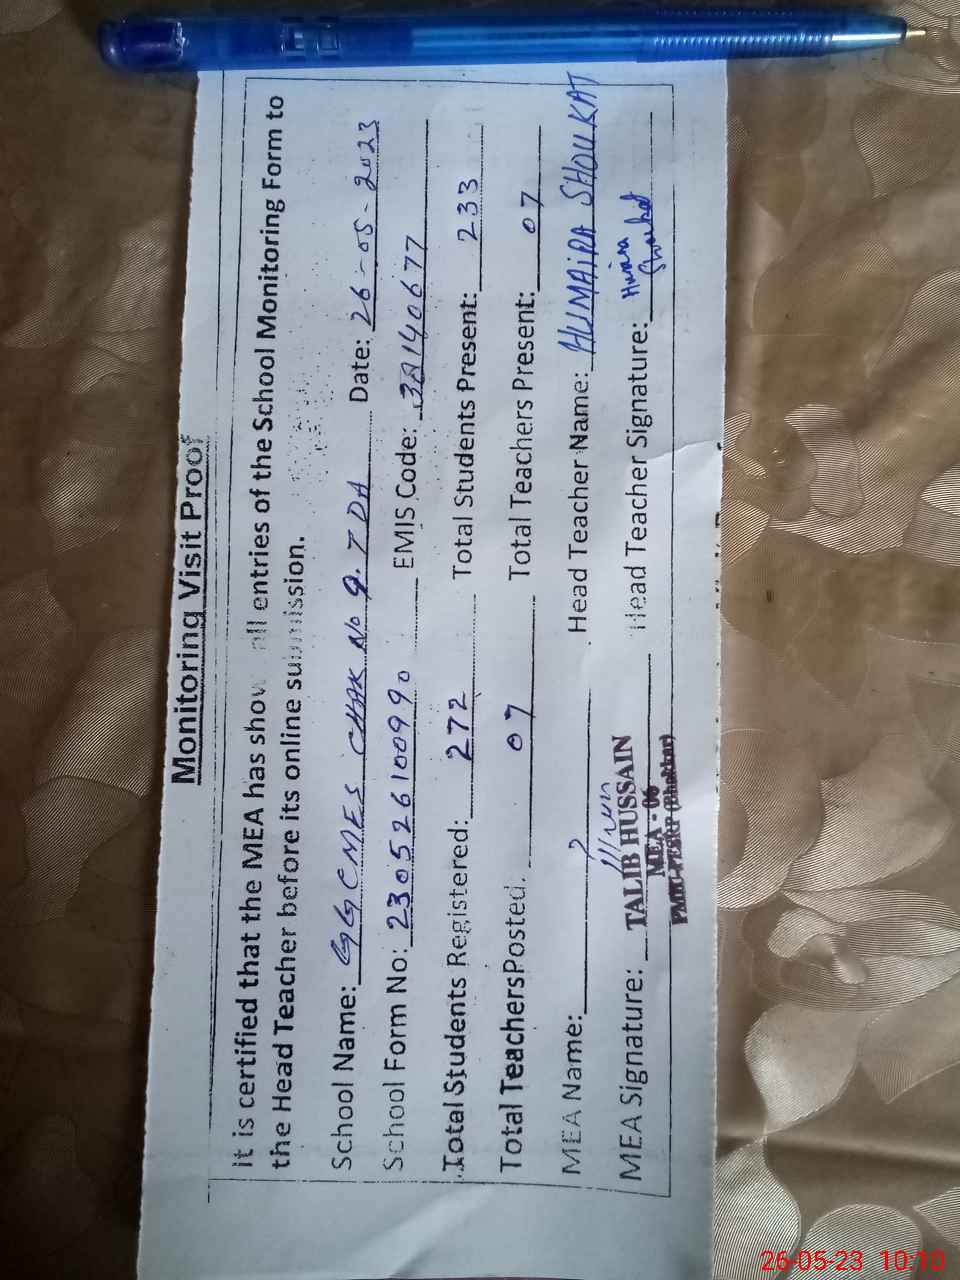 Monitoring Visit Proof
It is certified that the MEA has shown all entries of the School Monitoring Form to
the Head Teacher before its online submission.
School Name: GG CMES CHAK No 9. TDA Date: 26-05-2023
School Form No: 230526100990 EMIS Code: 3A140677
Total Students Registered: 272 Total Students Present: 233
Total Teachers Posted: 07 Total Teachers Present: 07
MEA Name: Head Teacher Name: HUMAIRA SHOUKAT
MEA Signature: Head Teacher Signature: Humaira Shoukat
TALIB HUSSAIN
MEA - 06
PMIU-PESRP (Bhakkar)
26-05-23 10:10